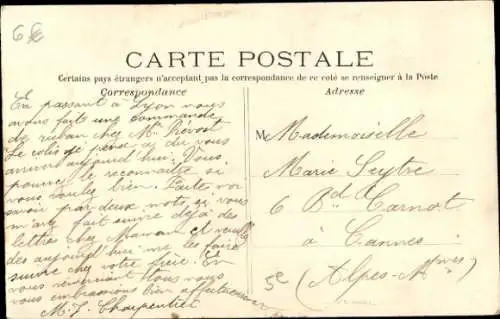 6€
CARTE POSTALE
Certains pays étrangers n'acceptant pas la correspondance de ce coté se renseigner à la Poste
Correspondance
Adresse
En passant à Lyon nous
avons fait une commande
de ruban chez Mr Prévost
Le colis je pense a du vous
arriver aujourd'hui. Vous
pouvez le reconnaître si
vous voulez bien. Faite
savoir par deux mots, si vous
m'avez fait suivre déjà des
lettres chez Maman et
dès aujourd'hui me les faire
suivre chez votre
vous remerciant tous nous
vous embrassons bien affectueusement
M. J. Charpentier
M Mademoiselle
Marie Seytre
6 Bd Carnot
à Cannes
(Alpes-Mmes)
5e